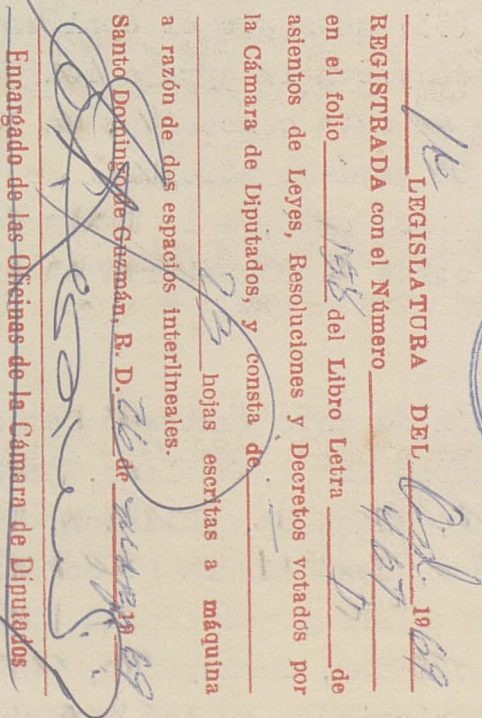 1a LEGISLATURA DEL Ord. 1969
REGISTRADA con el Número 467
en el folio 158 del Libro Letra D de
asientos de Leyes, Resoluciones y Decretos votados por
la Cámara de Diputados, y consta de
23 hojas escritas a máquina
a razón de dos espacios interlineales.
Santo Domingo de Guzmán, R. D. 26 de 1969
Encargado de las Oficinas de la Cámara de Diputados